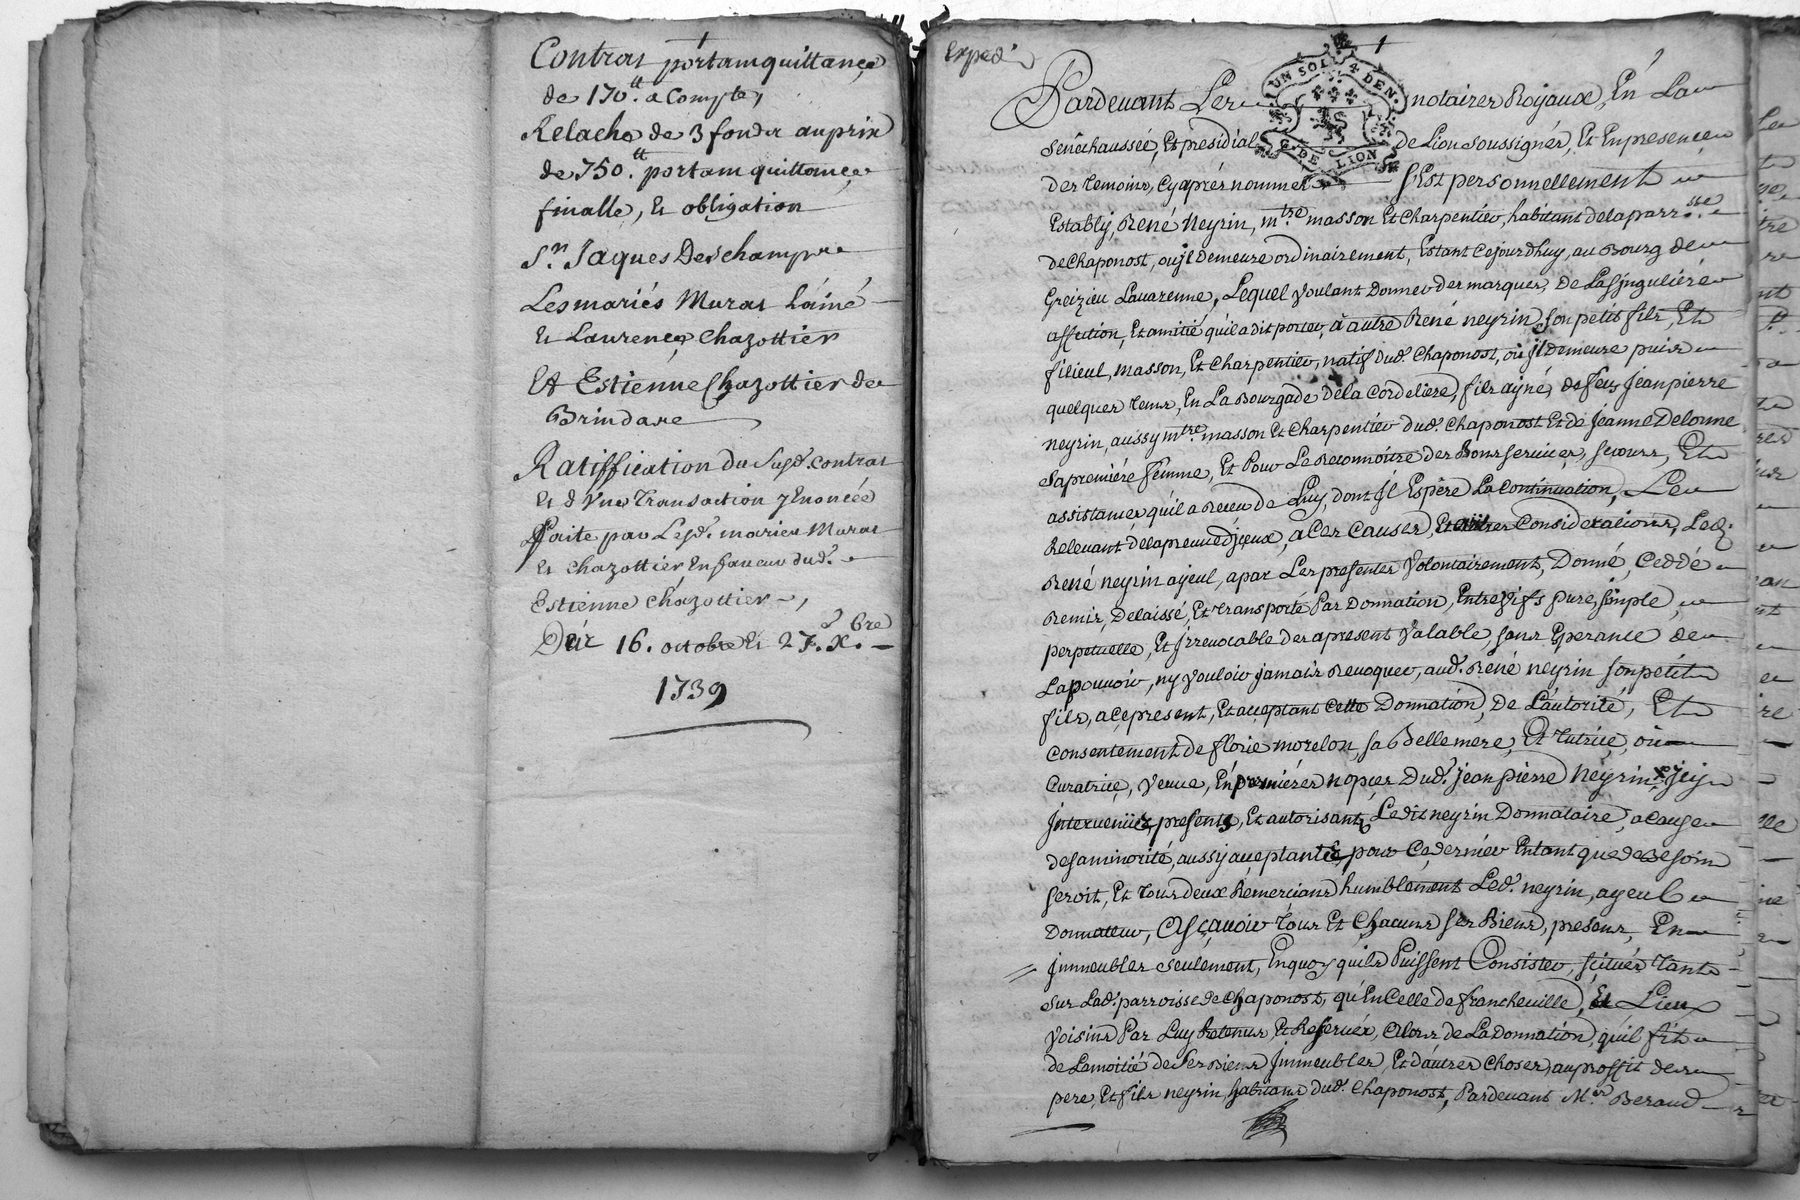 Contrat portant quittance
de 170.tt a Compte,
Relache de 3 fonds au prix
de 750.tt portant quittance
finalle, Et obligation
Sr. Jaques Deschamps
Les mariés Murat L'ainé
Et Laurence Chazottier
Et Estienne Chazottier de
Brindase
Ratiffication du Susd. contrat
Et d'Une Transaction y Enoncée
faite par Lesd. mariés Murat
Et Chazottier En faveur dud.
Estienne Chazottier,
Des 16. octobre Et 27. Xbre
1739
Exped.
UN SOL 4 DEN.
G. DE LION
Pardevant Les notaires Royaux, En La
sénéchaussée, Et présidial de Lion soussignés, Et En presence
des temoins, Cyaprés nommés S'Est personnellement
Estably, René Neyrin, mtre masson Et Charpentier, habitant de la parrsse
de Chaponost, ou jl Demeure ordinairement, Estant Cejourdhuy, au Bourg de
Greizieu Lavarenne, Lequel Voulant Donner des marques, de La Singuliére
affection, Et amitié qu'il a dit porter, à autre René neyrin, son petit fils, Et
filieul, masson, Et Charpentier, natif dud. Chaponost, où jl Demeure puis
quelques tems, En La Bourgade de la Cordeliere, fils ayné, de feu Jean pierre
neyrin, aussy mtre masson Et Charpentier dud. Chaponost Et de Jeanne Delorme
sa premiére femme, Et Pour Le Reconnoitre des Bons services, secours, Et
assistances qu'il a Receu de Luy, dont jl Espére La Continuation, Le
Relevant de la preuve d'jceux, a Ces Causes, Et autres Considerations, Led.
René neyrin ayeul, a par Les presentes Volontairement, Donné, Ceddé
Remis, Delaissé, Et transporté Par Donnation, Entre Vifs pure, simple,
perpetuelle, Et jrrevocable des apresent Valable, sans Esperance de
La pouvoir, ny Vouloir jamais Revoquer, aud. René neyrin son petit
fils, a Ce present, Et acceptant Cette Donnation, de L'autorité, Et
Consentement de florie morelon, sa Belle mere, Et tutrice, où
Curatrice, Veuve, En premiéres nopces dud. jean pierre Neyrin, jcy
jntervenüe, presente, Et autorisant, Ledit neyrin Donnataire, a Cause
de sa minorité, aussy acceptante, pour Ce dernier Entant que de Besoin
seroit, Et tous deux Remerciant humblement Led. neyrin, ayeul
Donnateur, Asçavoir Tous Et Chacuns ses Biens, presens, En
jmmeubles seulement, En quoy qu'ils Puissent Consister, scitués tant
sur Lad. parroisse de Chaponost, qu'En Celle de francheville, Et Lieux
Voisins Par Luy Retenus, Et Reservés, alors de La Donnation, qu'il fit
de La moitié de Ses Biens jmmeubles, Et d'autres Choses, au proffit des
pere, Et fils neyrin habitans dud. Chaponost, Pardevant Mr. Beraud